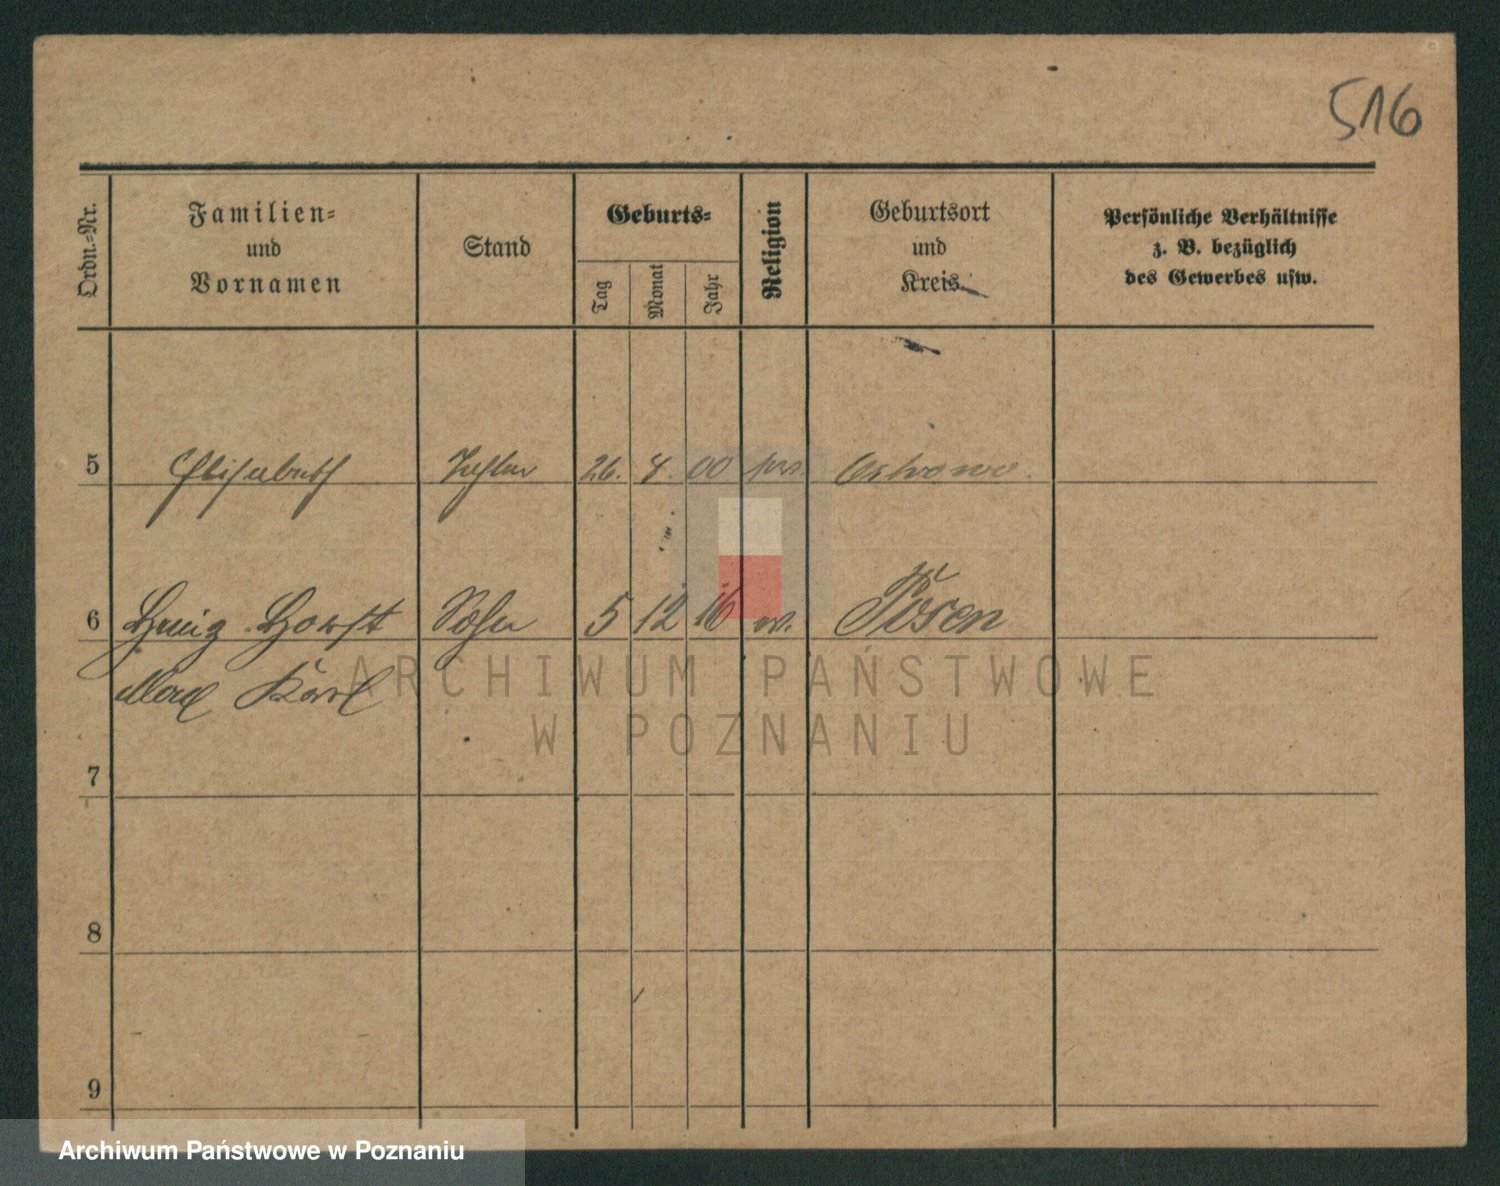 516
Ordn.-Nr.
Familien-
und
Vornamen
Stand
Geburts-
Tag
Monat
Jahr
Religion
Geburtsort
und
Kreis
Persönliche Verhältnisse
z. B. bezüglich
des Gewerbes usw.
5 Elisabeth Tochter 26. 4. 00 Ostrowo
6 Heinz Horst Sohn 5 12 16 Posen
Karl
ARCHIWUM PAŃSTWOWE
W POZNANIU
7
8
9
Archiwum Państwowe w Poznaniu